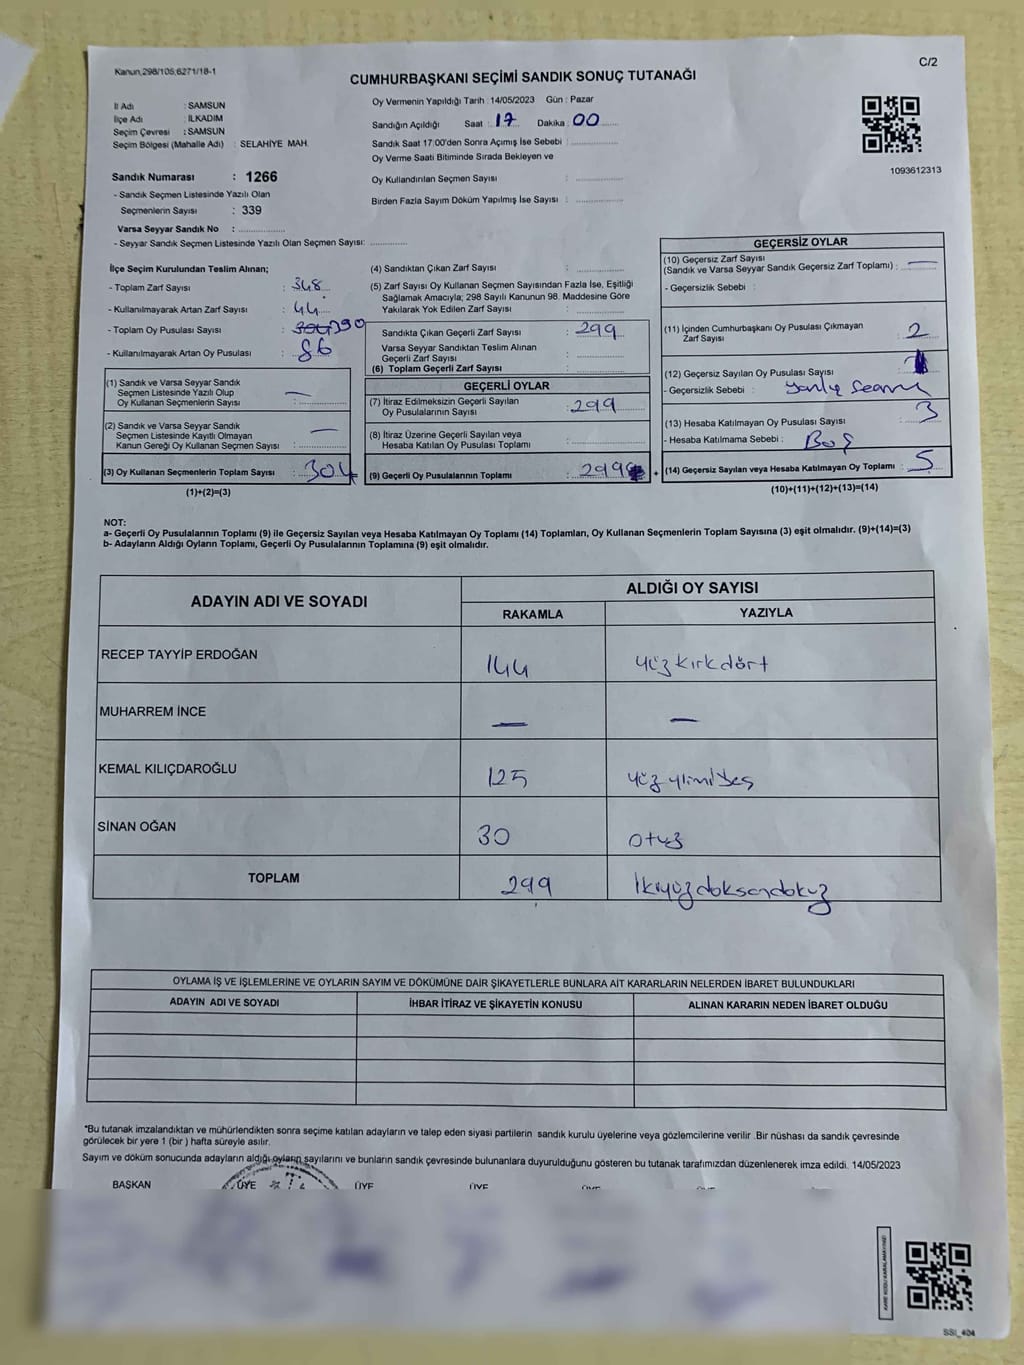 Kanun,298/105,6271/18-1
C/2
CUMHURBAŞKANI SEÇİMİ SANDIK SONUÇ TUTANAĞI
İl Adı : SAMSUN
İlçe Adı : İLKADIM
Seçim Çevresi : SAMSUN
Seçim Bölgesi (Mahalle Adı) : SELAHİYE MAH.
Sandık Numarası : 1266
- Sandık Seçmen Listesinde Yazılı Olan
Seçmenlerin Sayısı : 339
Varsa Seyyar Sandık No :
- Seyyar Sandık Seçmen Listesinde Yazılı Olan Seçmen Sayısı:
Oy Vermenin Yapıldığı Tarih : 14/05/2023 Gün : Pazar
Sandığın Açıldığı Saat : 17 Dakika : 00
Sandık Saat 17:00'den Sonra Açımış İse Sebebi :
Oy Verme Saati Bitiminde Sırada Bekleyen ve
Oy Kullandırılan Seçmen Sayısı :
Birden Fazla Sayım Döküm Yapılmış İse Sayısı :
1093612313
İlçe Seçim Kurulundan Teslim Alınan;
- Toplam Zarf Sayısı : 348
- Kullanılmayarak Artan Zarf Sayısı : 44
- Toplam Oy Pusulası Sayısı : 390
- Kullanılmayarak Artan Oy Pusulası : 86
(1) Sandık ve Varsa Seyyar Sandık
Seçmen Listesinde Yazılı Olup
Oy Kullanan Seçmenlerin Sayısı : —
(2) Sandık ve Varsa Seyyar Sandık
Seçmen Listesinde Kayıtlı Olmayan
Kanun Gereği Oy Kullanan Seçmen Sayısı : —
(3) Oy Kullanan Seçmenlerin Toplam Sayısı : 304
(1)+(2)=(3)
(4) Sandıktan Çıkan Zarf Sayısı :
(5) Zarf Sayısı Oy Kullanan Seçmen Sayısından Fazla İse, Eşitliği
Sağlamak Amacıyla; 298 Sayılı Kanunun 98. Maddesine Göre
Yakılarak Yok Edilen Zarf Sayısı :
Sandıkta Çıkan Geçerli Zarf Sayısı : 299
Varsa Seyyar Sandıktan Teslim Alınan
Geçerli Zarf Sayısı :
(6) Toplam Geçerli Zarf Sayısı :
GEÇERLİ OYLAR
(7) İtiraz Edilmeksizin Geçerli Sayılan
Oy Pusulalarının Sayısı : 299
(8) İtiraz Üzerine Geçerli Sayılan veya
Hesaba Katılan Oy Pusulası Toplamı :
(9) Geçerli Oy Pusulalarının Toplamı : 299
+
GEÇERSİZ OYLAR
(10) Geçersiz Zarf Sayısı
(Sandık ve Varsa Seyyar Sandık Geçersiz Zarf Toplamı) : —
- Geçersizlik Sebebi :
(11) İçinden Cumhurbaşkanı Oy Pusulası Çıkmayan
Zarf Sayısı : 2
(12) Geçersiz Sayılan Oy Pusulası Sayısı :
- Geçersizlik Sebebi :
(13) Hesaba Katılmayan Oy Pusulası Sayısı : 3
- Hesaba Katılmama Sebebi : Boş
(14) Geçersiz Sayılan veya Hesaba Katılmayan Oy Toplamı : 5
(10)+(11)+(12)+(13)=(14)
NOT:
a- Geçerli Oy Pusulalarının Toplamı (9) ile Geçersiz Sayılan veya Hesaba Katılmayan Oy Toplamı (14) Toplamları, Oy Kullanan Seçmenlerin Toplam Sayısına (3) eşit olmalıdır. (9)+(14)=(3)
b- Adayların Aldığı Oyların Toplamı, Geçerli Oy Pusulalarının Toplamına (9) eşit olmalıdır.
ADAYIN ADI VE SOYADI
ALDIĞI OY SAYISI
RAKAMLA YAZIYLA
RECEP TAYYİP ERDOĞAN 144 yüzkırkdört
MUHARREM İNCE — —
KEMAL KILIÇDAROĞLU 125 yüz yirmibeş
SİNAN OĞAN 30 otuz
TOPLAM 299 İkiyüzdoksandokuz
OYLAMA İŞ VE İŞLEMLERİNE VE OYLARIN SAYIM VE DÖKÜMÜNE DAİR ŞİKAYETLERLE BUNLARA AİT KARARLARIN NELERDEN İBARET BULUNDUKLARI
ADAYIN ADI VE SOYADI İHBAR İTİRAZ VE ŞİKAYETİN KONUSU ALINAN KARARIN NEDEN İBARET OLDUĞU
*Bu tutanak imzalandıktan ve mühürlendikten sonra seçime katılan adayların ve talep eden siyasi partilerin sandık kurulu üyelerine veya gözlemcilerine verilir .Bir nüshası da sandık çevresinde
görülecek bir yere 1 (bir ) hafta süreyle asılır.
Sayım ve döküm sonucunda adayların aldığı oyların sayılarını ve bunların sandık çevresinde bulunanlara duyurulduğunu gösteren bu tutanak tarafımızdan düzenlenerek imza edildi. 14/05/2023
BAŞKAN ÜYE ÜYE ÜYE
SSI_404